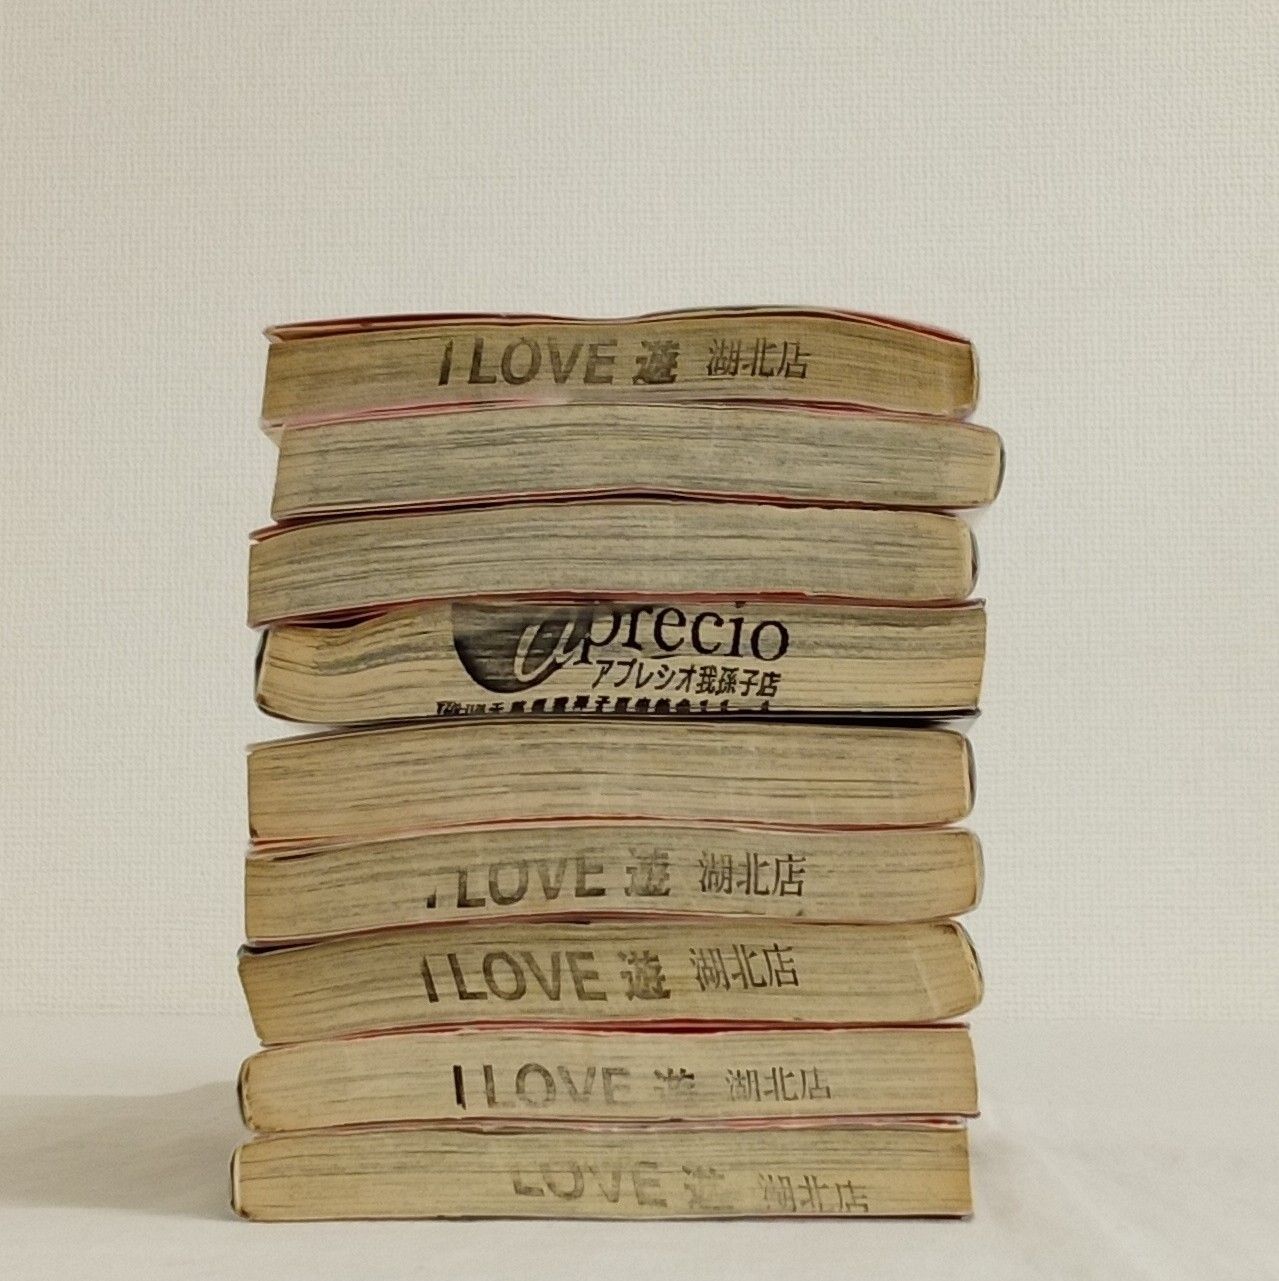 I LOVE 遊 湖北店
aprecio
アプレシオ我孫子店
I LOVE 遊 湖北店
I LOVE 遊 湖北店
I LOVE 遊 湖北店
LOVE 遊 湖北店